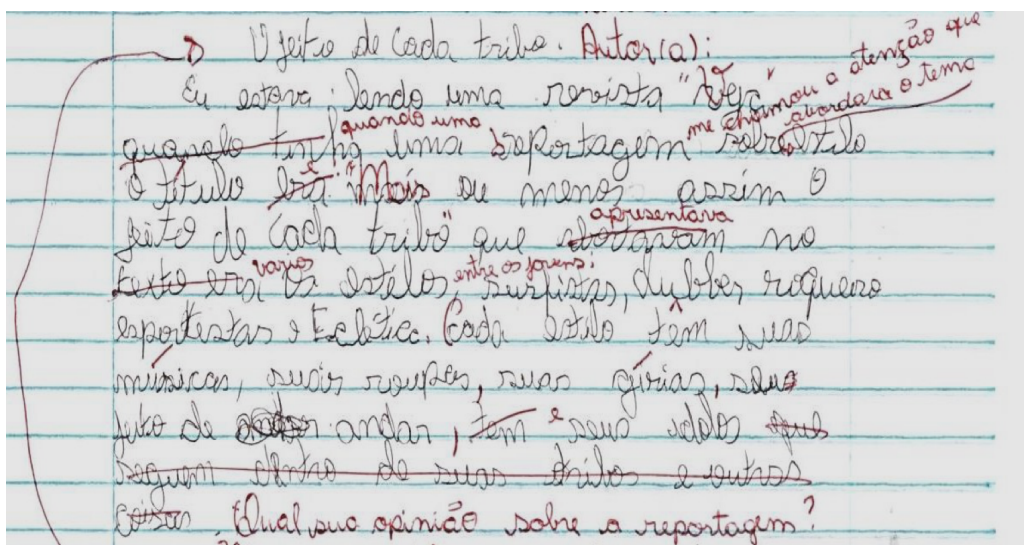 O jeito de Cada tribo. Autor(a):
Eu estava lendo uma revista "Veja" me chamou a atenção que
quando tinha quando uma uma reportagem sobre abordara o tema estilo
O título era é "Mais ou menos assim O
jeito de Cada tribo" que apresentava no
texto era varios os estilos, entre os jovens: surfistas, clubber roqueiro
esportestas e Eclético. Cada estilo têm suas
músicas, suas roupas, suas gírias, seus
jeito de andar, tem e seus idolos que
seguem dentro de suas tribos e outras
coisas. Qual sua opinião sobre a reportagem?